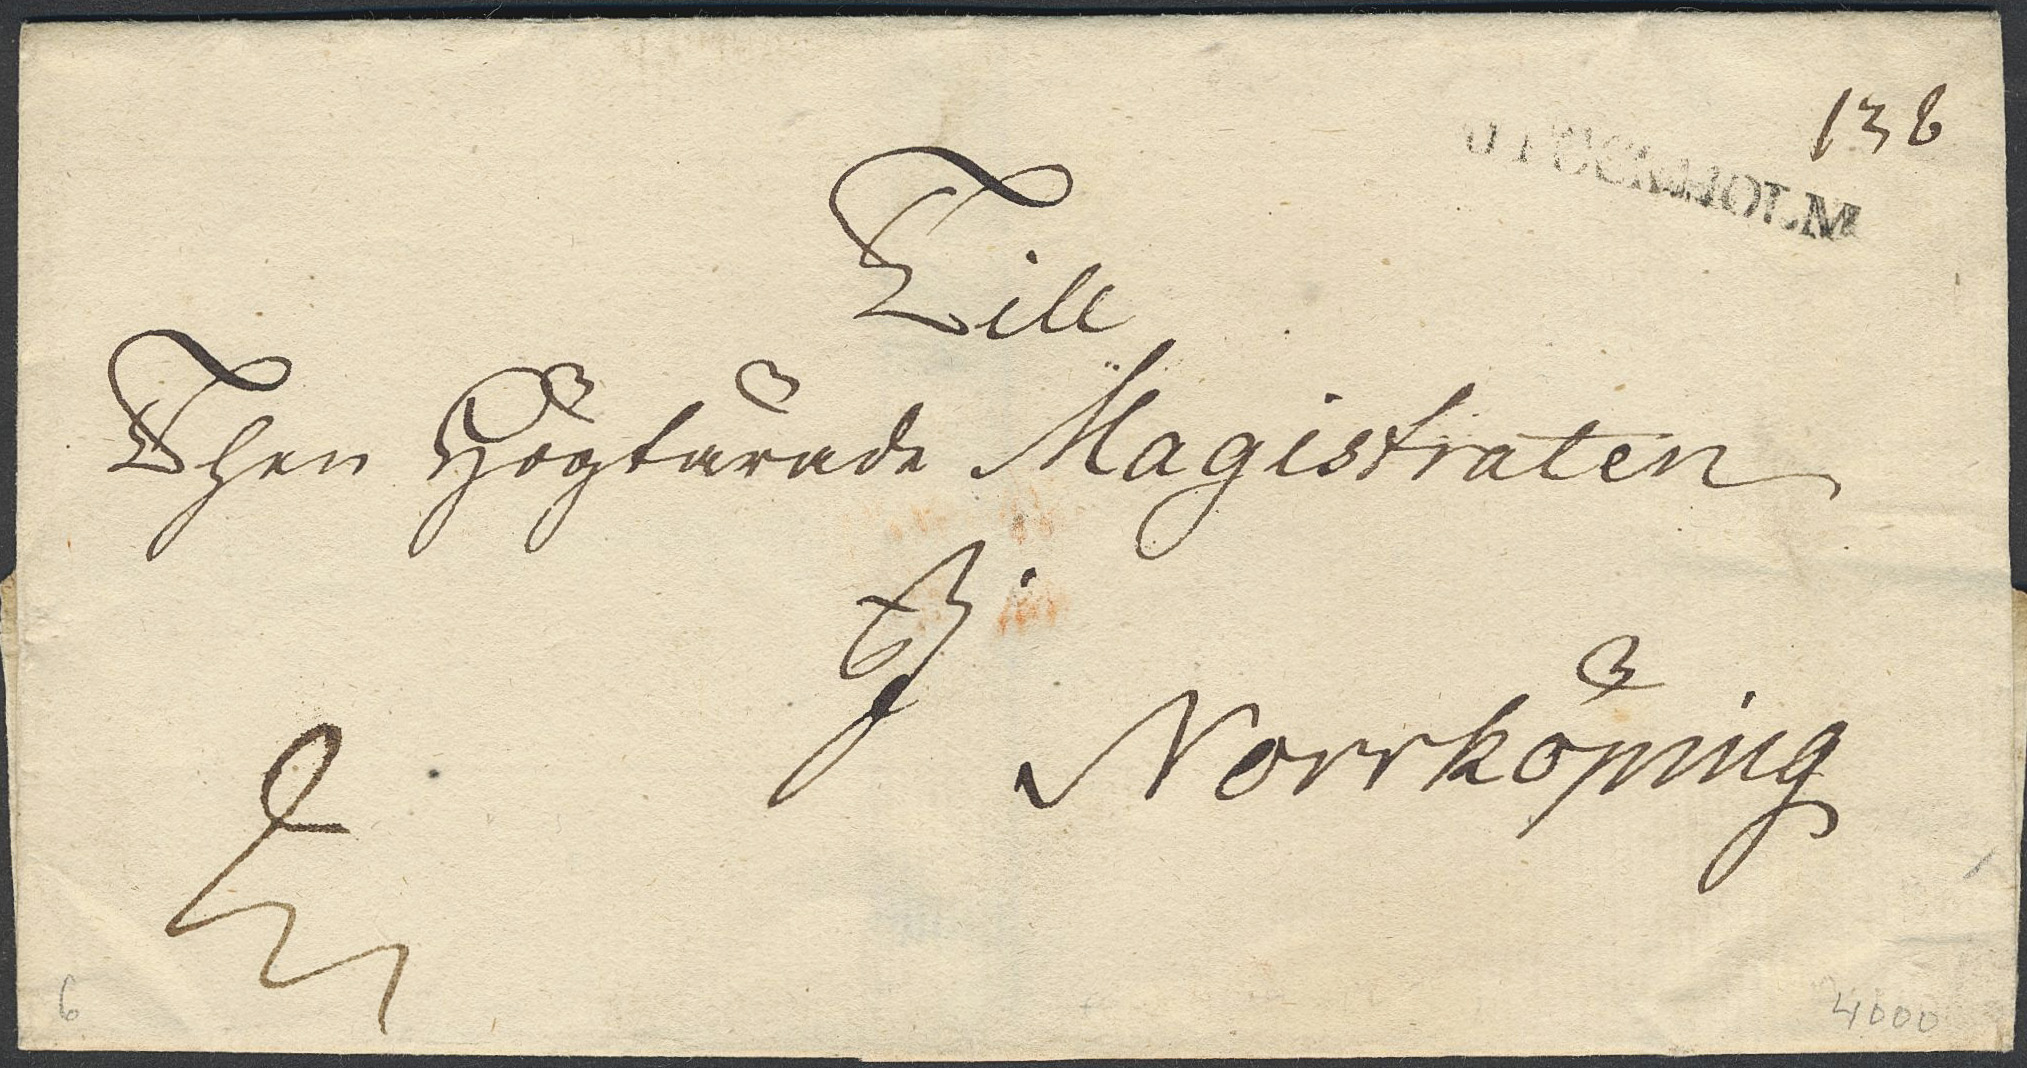 138
STOCKHOLM
Till
Then Högtärade Magistraten
i
Norrköping
6
4000